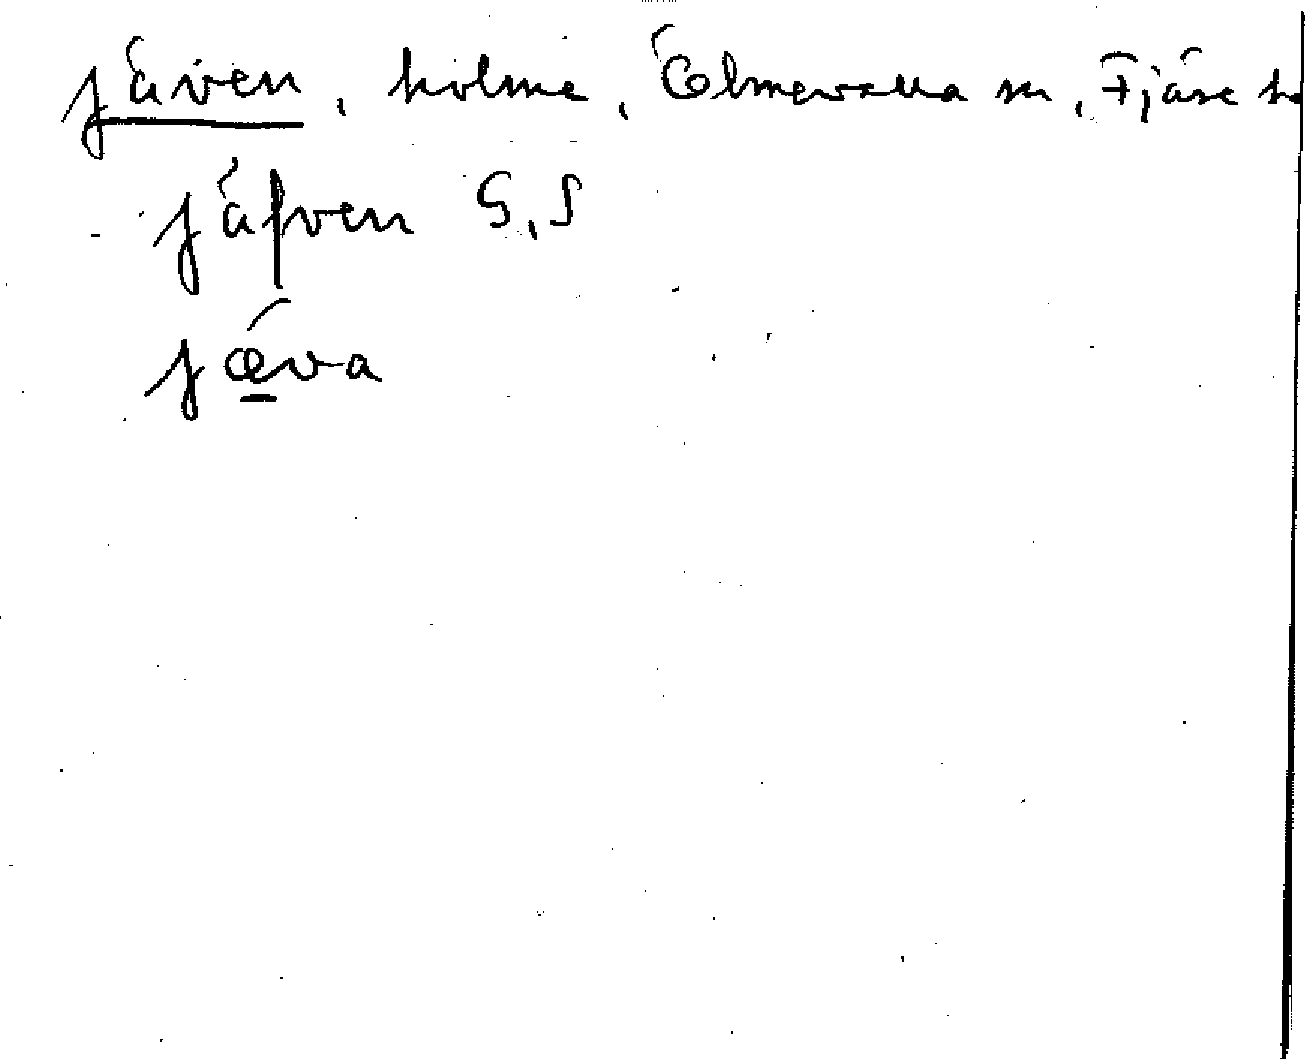 Jäven, holme, Ölmevalla sn, Fjäre h
Jäfven G, S
jæva